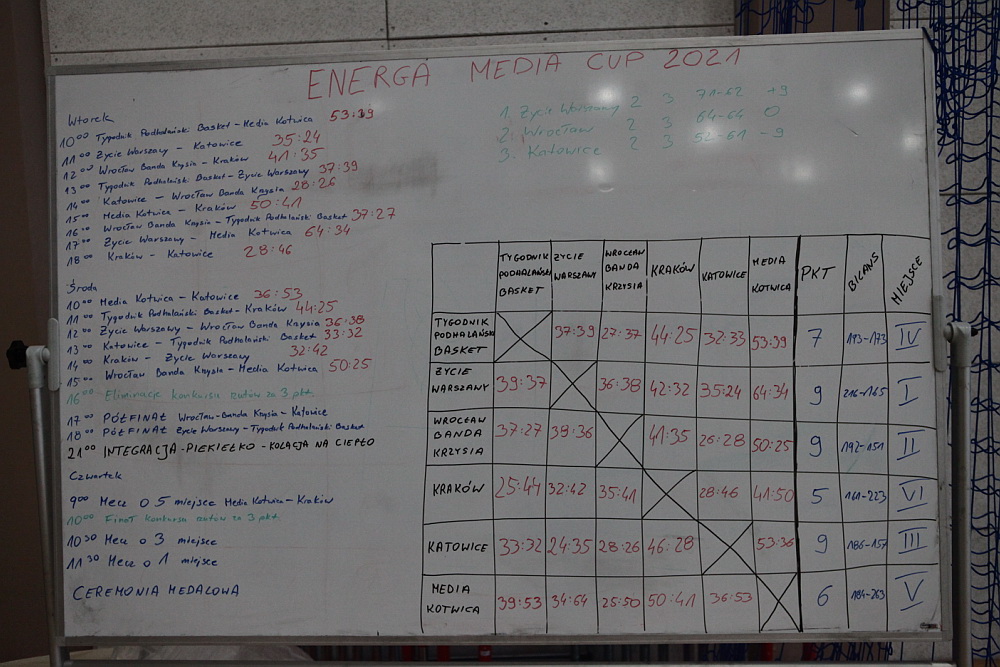 ENERGA MEDIA CUP 2021
Wtorek
10⁰⁰ Tygodnik Podhalański Basket - Media Kotwica 53:39
11⁰⁰ Życie Warszawy - Katowice 35:24
12⁰⁰ Wrocław Banda Krysia - Kraków 41:35
13⁰⁰ Tygodnik Podhalański Basket - Życie Warszawy 37:39
14⁰⁰ Katowice - Wrocław Banda Krysia 28:26
15⁰⁰ Media Kotwica - Kraków 50:41
16⁰⁰ Wrocław Banda Krysia - Tygodnik Podhalański Basket 37:27
17⁰⁰ Życie Warszawy - Media Kotwica 64:34
18⁰⁰ Kraków - Katowice 28:46
Środa
10⁰⁰ Media Kotwica - Katowice 36:53
11⁰⁰ Tygodnik Podhalański Basket - Kraków 44:25
12⁰⁰ Życie Warszawy - Wrocław Banda Krysia 36:38
13⁰⁰ Katowice - Tygodnik Podhalański Basket 33:32
14⁰⁰ Kraków - Życie Warszawy 32:42
15⁰⁰ Wrocław Banda Krysia - Media Kotwica 50:25
16⁰⁰ Eliminacje konkursu rzutów za 3 pkt.
17⁰⁰ PÓŁFINAŁ Wrocław-Banda Krysia - Katowice
18⁰⁰ PÓŁFINAŁ Życie Warszawy - Tygodnik Podhalański Basket
21⁰⁰ INTEGRACJA - PIEKIEŁKO - KOLACJA NA CIEPŁO
Czwartek
9⁰⁰ Mecz o 5 miejsce Media Kotwica - Kraków
10⁰⁰ Finał konkursu rzutów za 3 pkt.
10³⁰ Mecz o 3 miejsce
11³⁰ Mecz o 1 miejsce
CEREMONIA MEDALOWA
1. Życie Warszawy 2 3 71-62 +9
2. Wrocław 2 3 64-64 0
3. Katowice 2 3 52-61 -9
TYGODNIK PODHALAŃSKI BASKET ŻYCIE WARSZAWY WROCŁAW BANDA KRZYSIA KRAKÓW KATOWICE MEDIA KOTWICA PKT BILANS MIEJSCE
TYGODNIK PODHALAŃSKI BASKET 37:39 27:37 44:25 32:33 53:39 7 193-173 IV
ŻYCIE WARSZAWY 39:37 36:38 42:32 35:24 64:34 9 216-165 I
WROCŁAW BANDA KRZYSIA 37:27 38:36 41:35 26:28 50:25 9 192-151 II
KRAKÓW 25:44 32:42 35:41 28:46 41:50 5 161-223 VI
KATOWICE 33:32 24:35 28:26 46:28 53:36 9 186-157 III
MEDIA KOTWICA 39:53 34:64 25:50 50:41 36:53 6 184-263 V